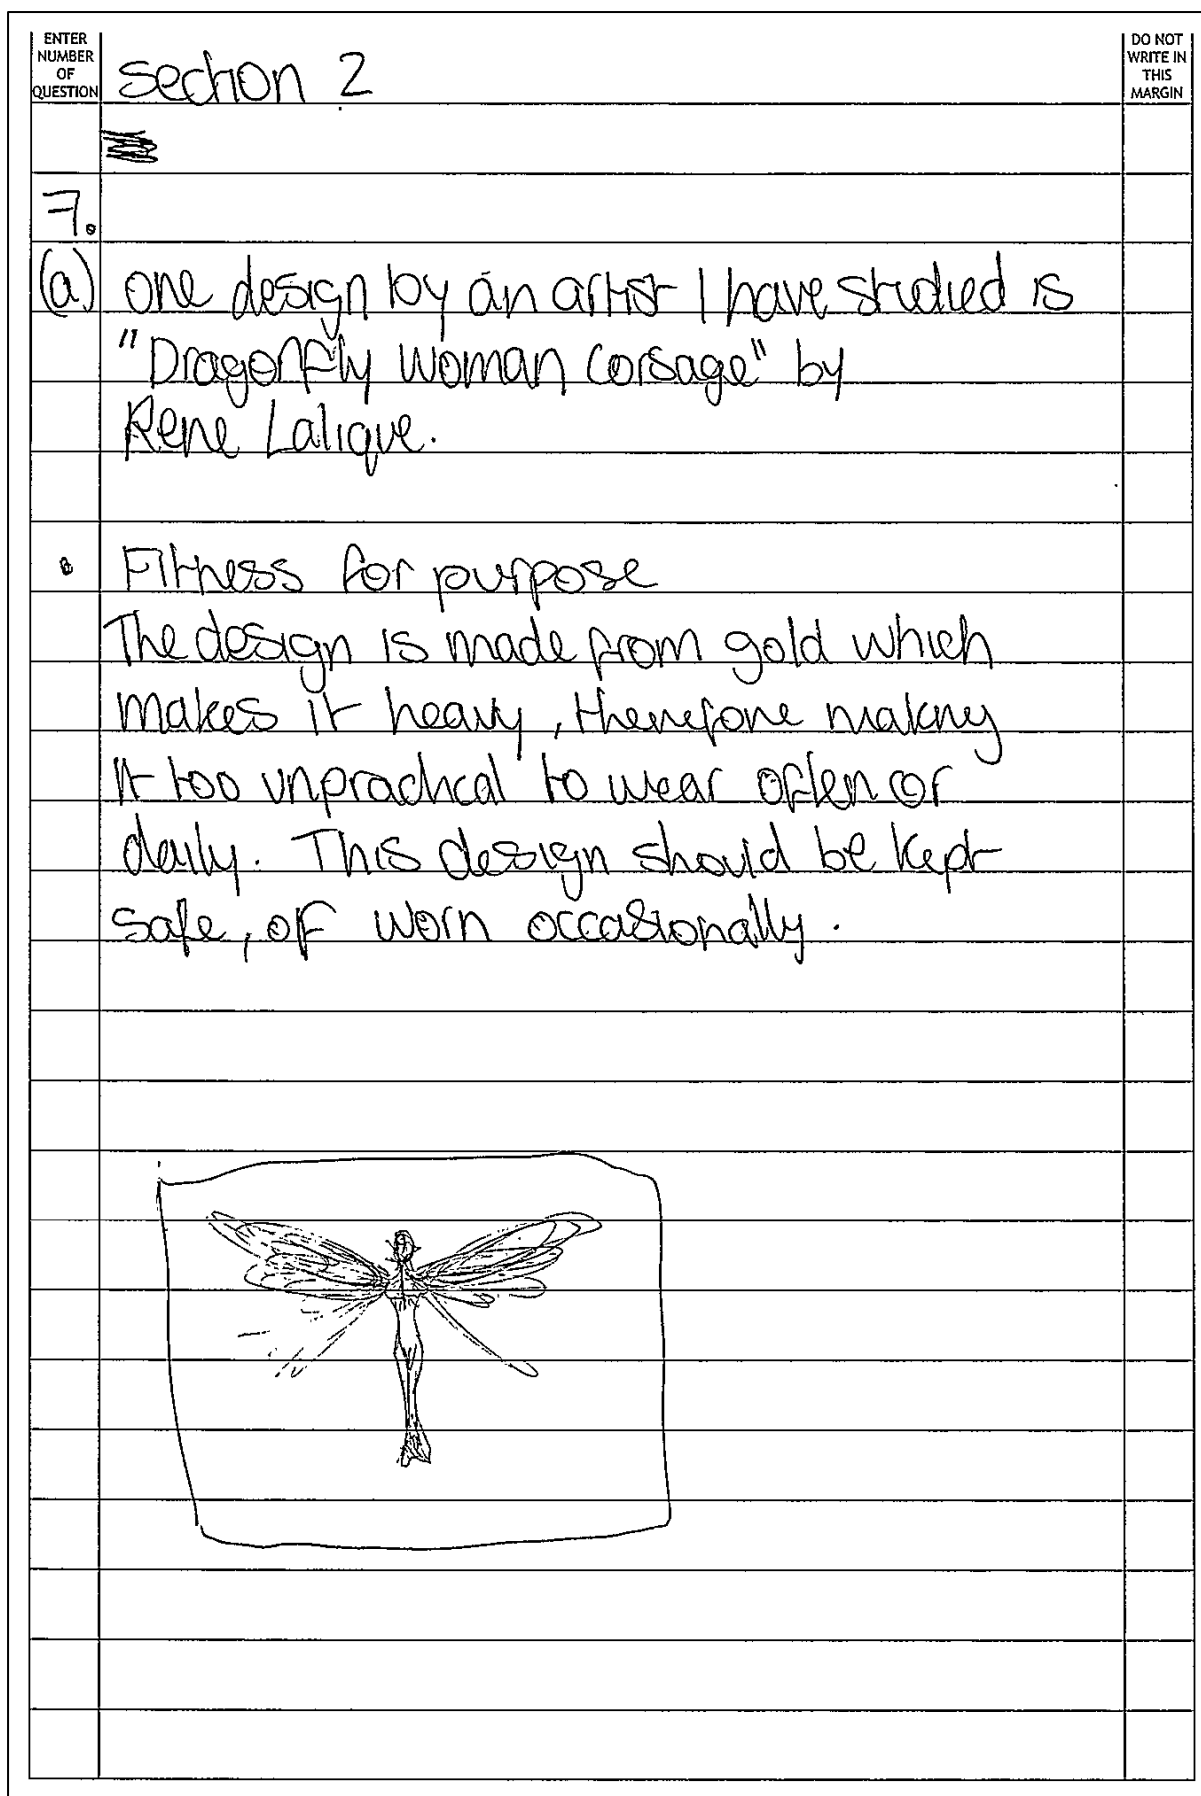 ENTER
NUMBER
OF
QUESTION
DO NOT
WRITE IN
THIS
MARGIN
Section 2
7.
(a) one design by an artist I have studied is
"Dragonfly Woman Corsage" by
Rene Lalique.
• Fitness for purpose
The design is made from gold which
makes it heavy, therefore making
it too unpractical to wear often or
daily. This design should be kept
safe, of worn occasionally.